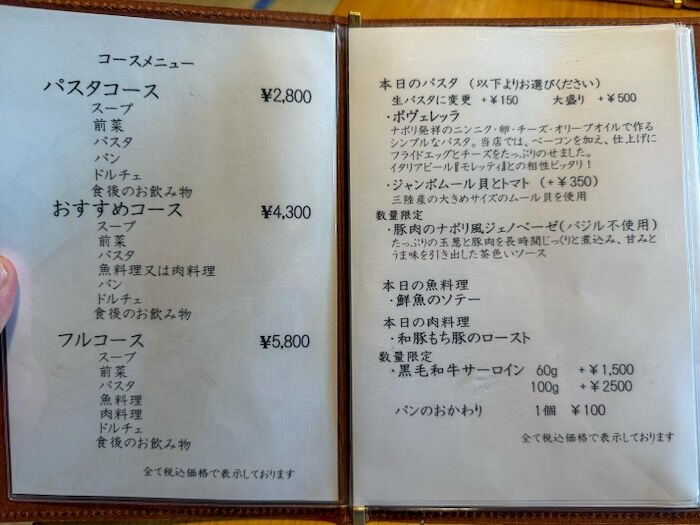 コースメニュー
パスタコース ¥2,800
スープ
前菜
パスタ
パン
ドルチェ
食後のお飲み物
おすすめコース ¥4,300
スープ
前菜
パスタ
魚料理又は肉料理
パン
ドルチェ
食後のお飲み物
フルコース ¥5,800
スープ
前菜
パスタ
魚料理
肉料理
ドルチェ
食後のお飲み物
全て税込価格で表示しております
本日のパスタ (以下よりお選びください)
生パスタに変更 +¥150 大盛り +¥500
・ポヴェレッラ
ナポリ発祥のニンニク・卵・チーズ・オリーブオイルで作る
シンプルなパスタ。当店では、ベーコンを加え、仕上げに
フライドエッグとチーズをたっぷりのせました。
イタリアビール『モレッティ』との相性ピッタリ!
・ジャンボムール貝とトマト (+¥350)
三陸産の大きめサイズのムール貝を使用
数量限定
・豚肉のナポリ風ジェノベーゼ(バジル不使用)
たっぷりの玉葱と豚肉を長時間じっくりと煮込み、甘みと
うま味を引き出した茶色いソース
本日の魚料理
・鮮魚のソテー
本日の肉料理
・和豚もち豚のロースト
数量限定
・黒毛和牛サーロイン 60g +¥1,500
100g +¥2500
パンのおかわり 1個 ¥100
全て税込価格で表示しております